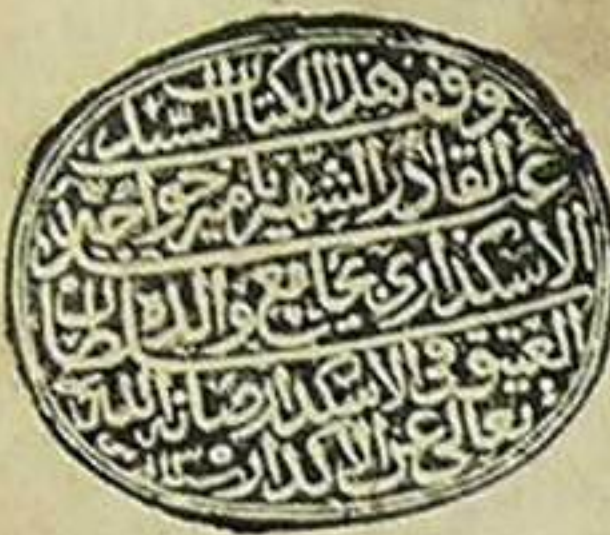 وقف هذا الكتاب السيد
عبد القادر الشهير بامير خواجه
الاسكدارى بجامع والده سلطان
العتيق فى الاسكدار صانه الله
تعالى عن الاكدار سنه